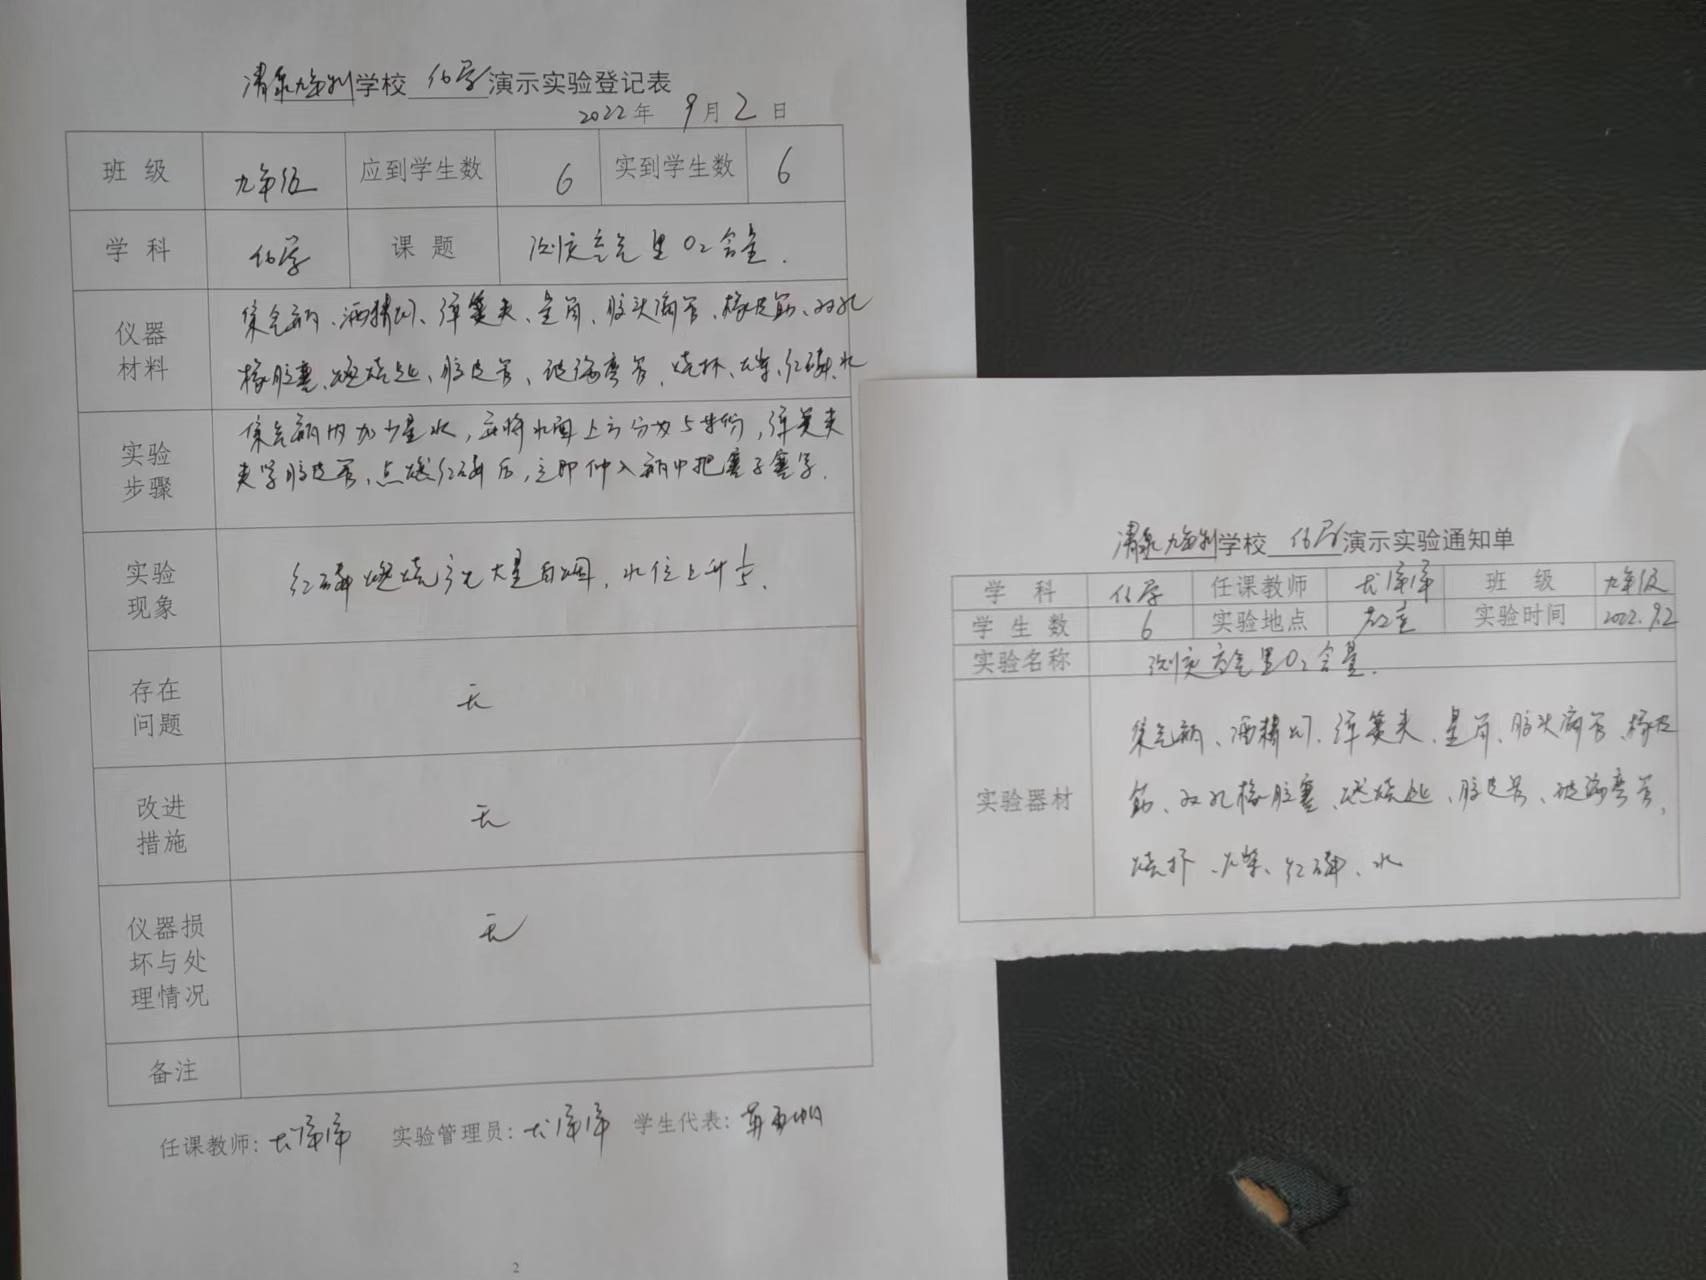 清泉九年制学校 化学 演示实验登记表
2022年 9月2日
班级 九年级 应到学生数 6 实到学生数 6
学科 化学 课题 测定空气里O₂含量.
仪器材料
集气瓶、酒精灯、弹簧夹、量筒、胶头滴管、橡皮筋、双孔
橡胶塞、燃烧匙、胶皮管、玻璃弯管、烧杯、火柴、红磷、水
实验步骤
集气瓶内加少量水,并将水面上方分为5等份,弹簧夹
夹紧胶皮管,点燃红磷后,立即伸入瓶中把塞子塞紧.
实验现象
红磷燃烧产生大量白烟,水位上升1/5.
存在问题 无
改进措施 无
仪器损坏与处理情况 无
备注
任课教师: 实验管理员: 学生代表:
2
清泉九年制学校 化学 演示实验通知单
学科 化学 任课教师 班级 九年级
学生数 6 实验地点 教室 实验时间 2022.9.2
实验名称 测定空气里O₂含量.
实验器材
集气瓶、酒精灯、弹簧夹、量筒、胶头滴管、橡皮
筋、双孔橡胶塞、燃烧匙、胶皮管、玻璃弯管、
烧杯、火柴、红磷、水